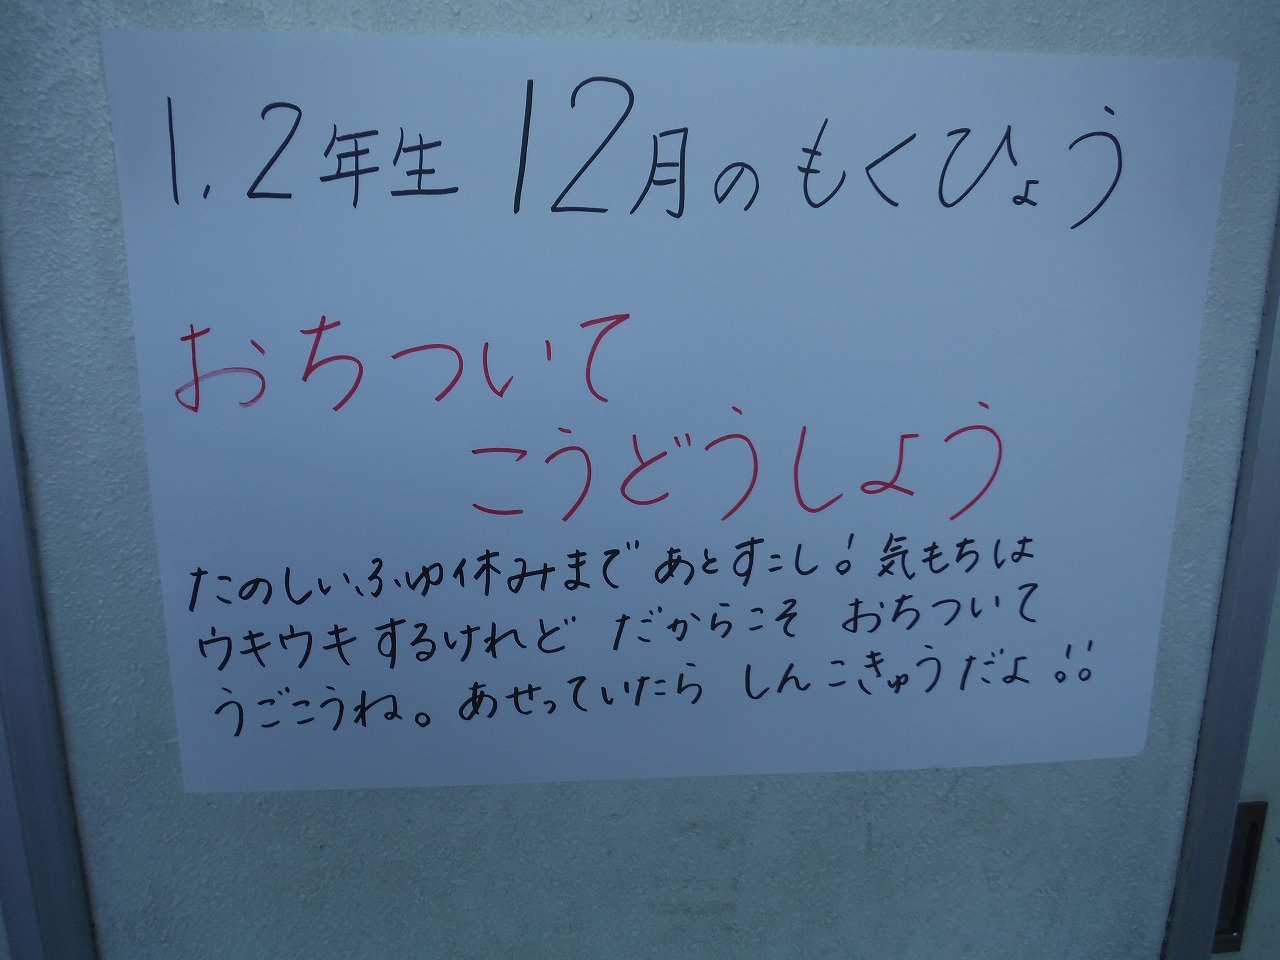 1.2年生 12月のもくひょう
おちついて
こうどうしよう
たのしいふゆ休みまで あとすこし! 気もちは
ウキウキするけれど だからこそ おちついて
うごこうね。あせっていたら しんこきゅうだよ!!